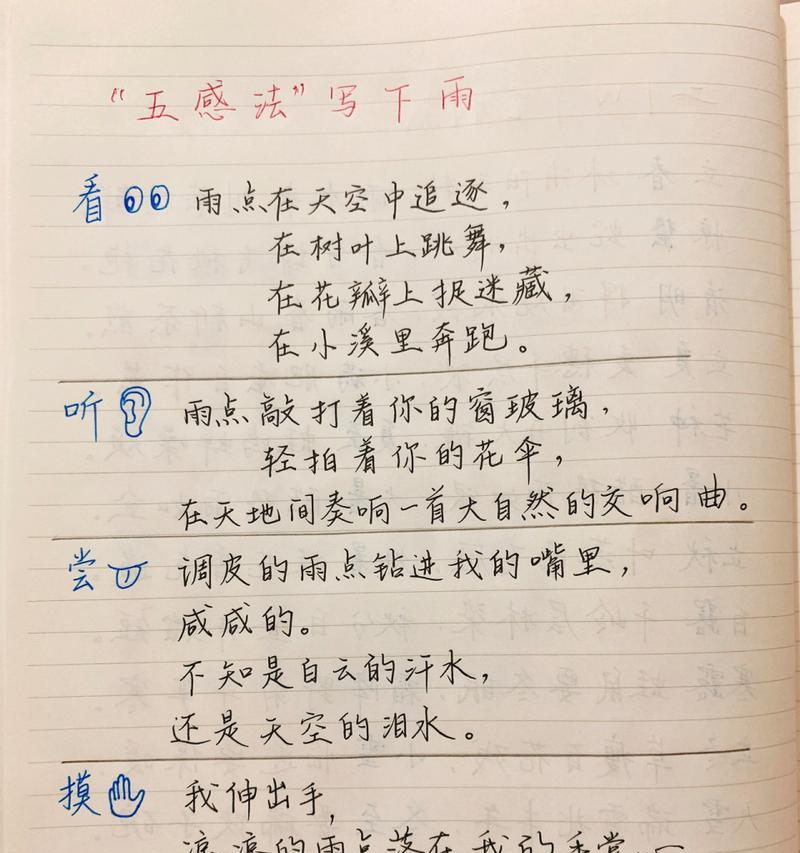 “五感法”写下雨
看 雨点在天空中追逐，
在树叶上跳舞，
在花瓣上捉迷藏，
在小溪里奔跑。
听 雨点敲打着你的窗玻璃，
轻拍着你的花伞，
在天地间奏响一首大自然的交响曲。
尝 调皮的雨点钻进我的嘴里，
咸咸的。
不知是白云的汗水，
还是天空的泪水。
摸 我伸出手，
凉凉的雨点落在我的手掌